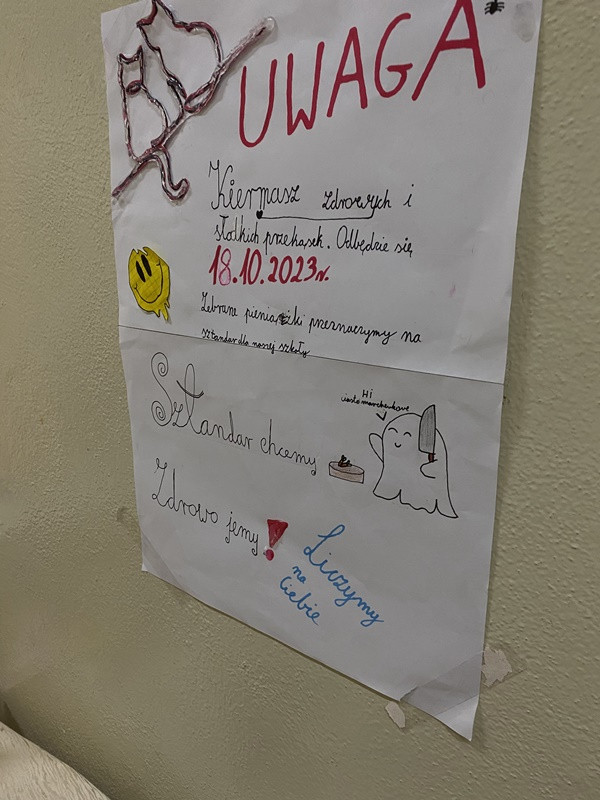 UWAGA
Kiermasz zdrowych i
słodkich przekąsek. Odbędzie się
18.10.2023r.
Zebrane pieniążki przeznaczymy na
sztandar dla naszej szkoły
Sztandar chcemy
Hi
ciasto marchewkowe
Zdrowo jemy!
Liczymy
na
Ciebie